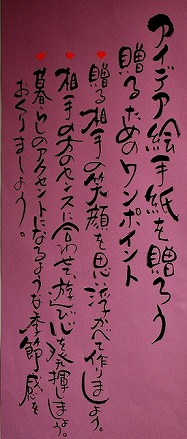 アイデア絵手紙を贈ろう
贈るためのワンポイント
贈る相手の笑顔を思い浮かべて作りましょう。
相手の方のセンスに合わせて、遊び心を発揮しましょう。
暮らしのアクセントになるような季節感を
おくりましょう。